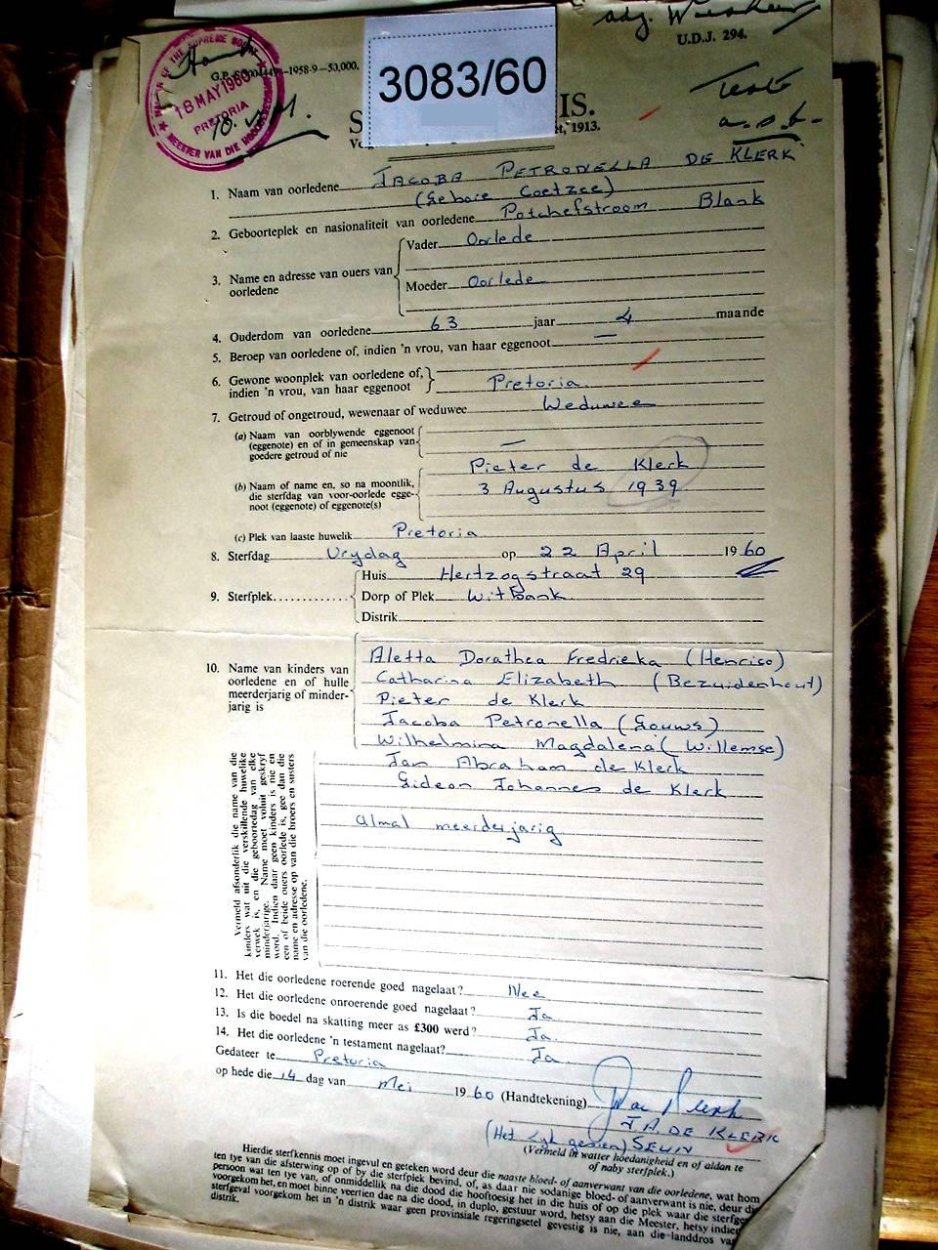 adj.
U.D.J. 294.
18 MAY 1960
PRETORIA
-1958-9—53,000.
3083/60
IS.
1913.
1. Naam van oorledene JACOBA PETRONELLA DE KLERK
(Gebore Coetzee)
2. Geboorteplek en nasionaliteit van oorledene Potchefstroom Blank
3. Name en adresse van ouers van oorledene
Vader Oorlede
Moeder Oorlede
4. Ouderdom van oorledene 63 jaar 4 maande
5. Beroep van oorledene of, indien 'n vrou, van haar eggenoot —
6. Gewone woonplek van oorledene of, indien 'n vrou, van haar eggenoot Pretoria
7. Getroud of ongetroud, wewenaar of weduwee Weduwee
(a) Naam van oorblywende eggenoot
(eggenote) en of in gemeenskap van
goedere getroud of nie —
(b) Naam of name en, so na moontlik,
die sterfdag van voor-oorlede egge-
noot (eggenote) of eggenote(s)
Pieter de Klerk
3 Augustus 1939
(c) Plek van laaste huwelik Pretoria
8. Sterfdag Vrydag op 22 April 1960
9. Sterfplek
Huis Hertzogstraat 29
Dorp of Plek Witbank
Distrik
10. Name van kinders van
oorledene en of hulle
meerderjarig of minder-
jarig is
Aletta Dorathea Fredrieka (Henrico)
Catharina Elizabeth (Bezuidenhout)
Pieter de Klerk
Jacoba Petronella (Gouws)
Wilhelmina Magdalena (Willemse)
Jan Abraham de Klerk
Gideon Johannes de Klerk
Almal meerderjarig
Vermeld afsonderlik die name van die
kinders wat uit die verskillende huwelike
verwek is, en die geboortedag van elke
minderjarige. Name moet voluit geskryf
word. Indien daar geen kinders is nie en
een of beide ouers oorlede is, gee dan die
name en adresse op van die broers en susters
van die oorledene.
11. Het die oorledene roerende goed nagelaat? Nee
12. Het die oorledene onroerende goed nagelaat? Ja
13. Is die boedel na skatting meer as £300 werd? Ja.
14. Het die oorledene 'n testament nagelaat? Ja
Gedateer te Pretoria
op hede die 14 dag van Mei 1960 (Handtekening)
J A DE KLERK
(Het lyk gesien) SEUN
(Vermeld in watter hoedanigheid en of aldan te
of naby sterfplek.)
Hierdie sterfkennis moet ingevul en geteken word deur die naaste bloed- of aanverwant van die oorledene, wat hom
ten tye van die afsterwing op of by die sterfplek bevind, of, as daar nie sodanige bloed- of aanverwant is nie, deur die
persoon wat ten tye van, of onmiddellik na die dood die hooftoesig het in die huis of op die plek waar die sterfgeval
voorgekom het, en moet binne veertien dae na die dood, in duplo, gestuur word, hetsy aan die Meester, hetsy indien
sterfgeval voorgekom het in 'n distrik waar geen provinsiale regeringsetel gevestig is nie, aan die landdros van
distrik.